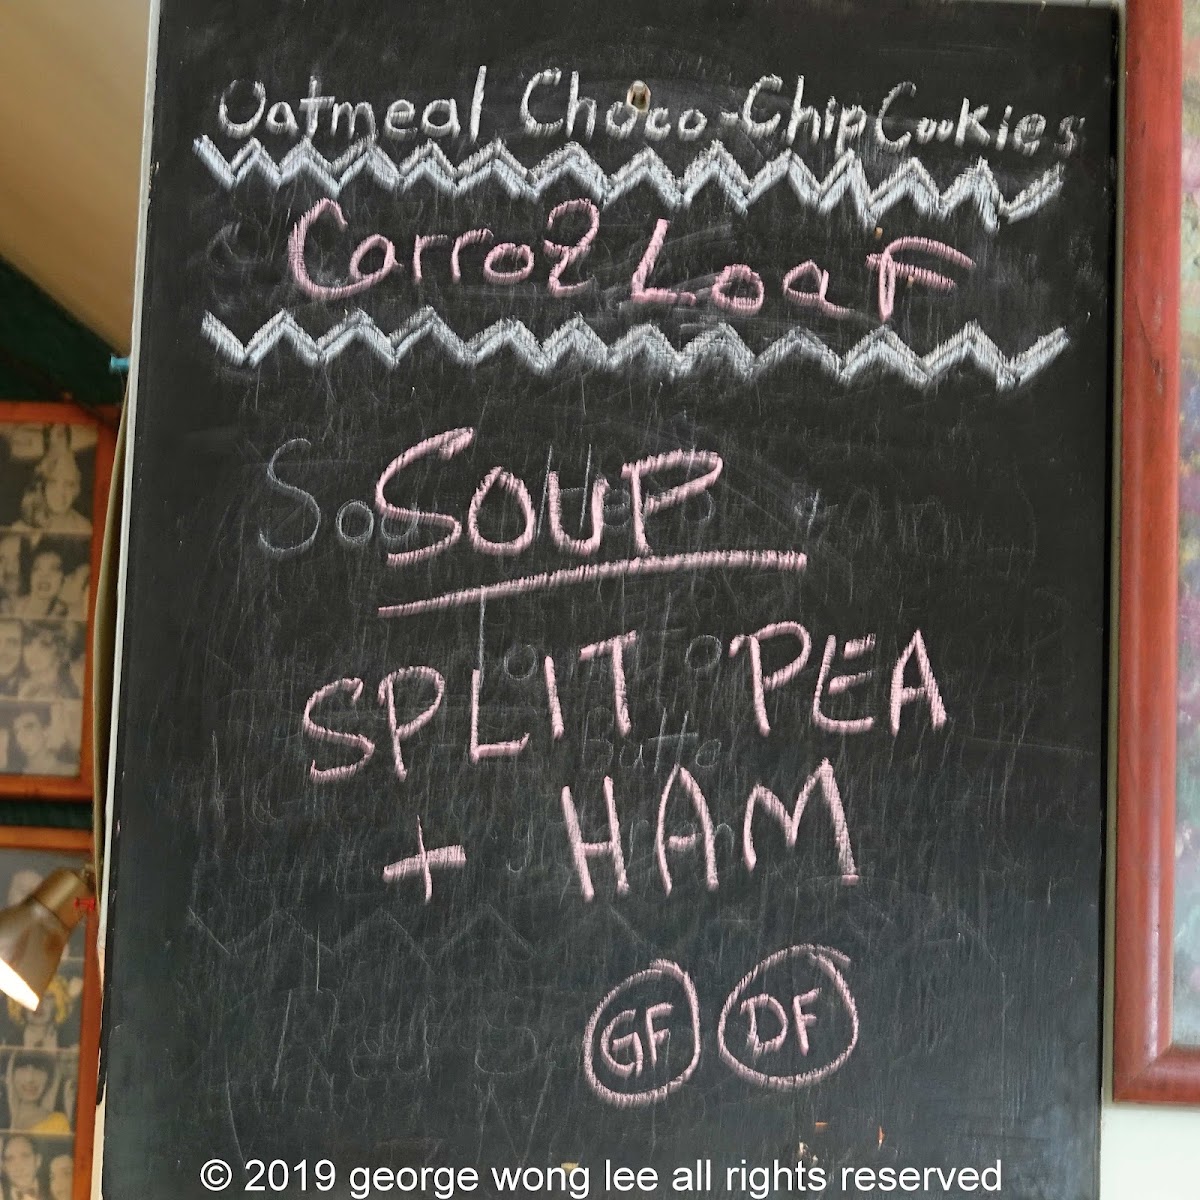 Oatmeal Choco-Chip Cookies
Carrot Loaf
SOUP
SPLIT PEA
+ HAM
GF DF
© 2019 george wong lee all rights reserved